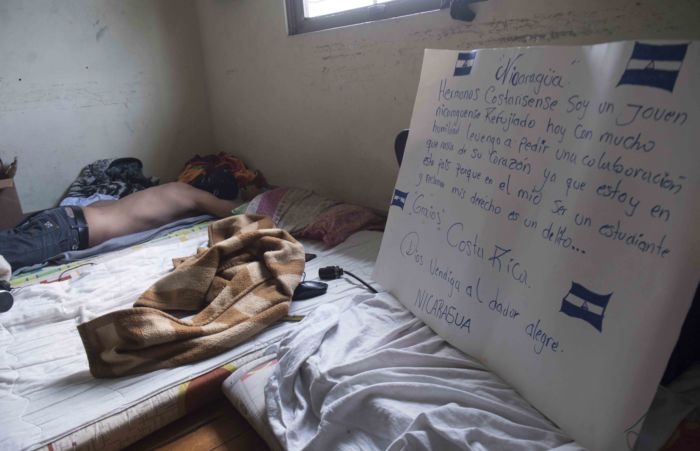 "Nicaragüa".
Hermanos Costarisense Soy un Joven
nicaraguense Refujiado hoy Con mucho
humildad levengo a pedir una colaboración
que nasca de su Corazón ya que estoy en
este país porque en el mío Ser un estudiante
y reclamar mis derecho es un delito...
¡Graciás! Costa Rica.
Dios Vendiga al dador alegre.
NICARAGUA